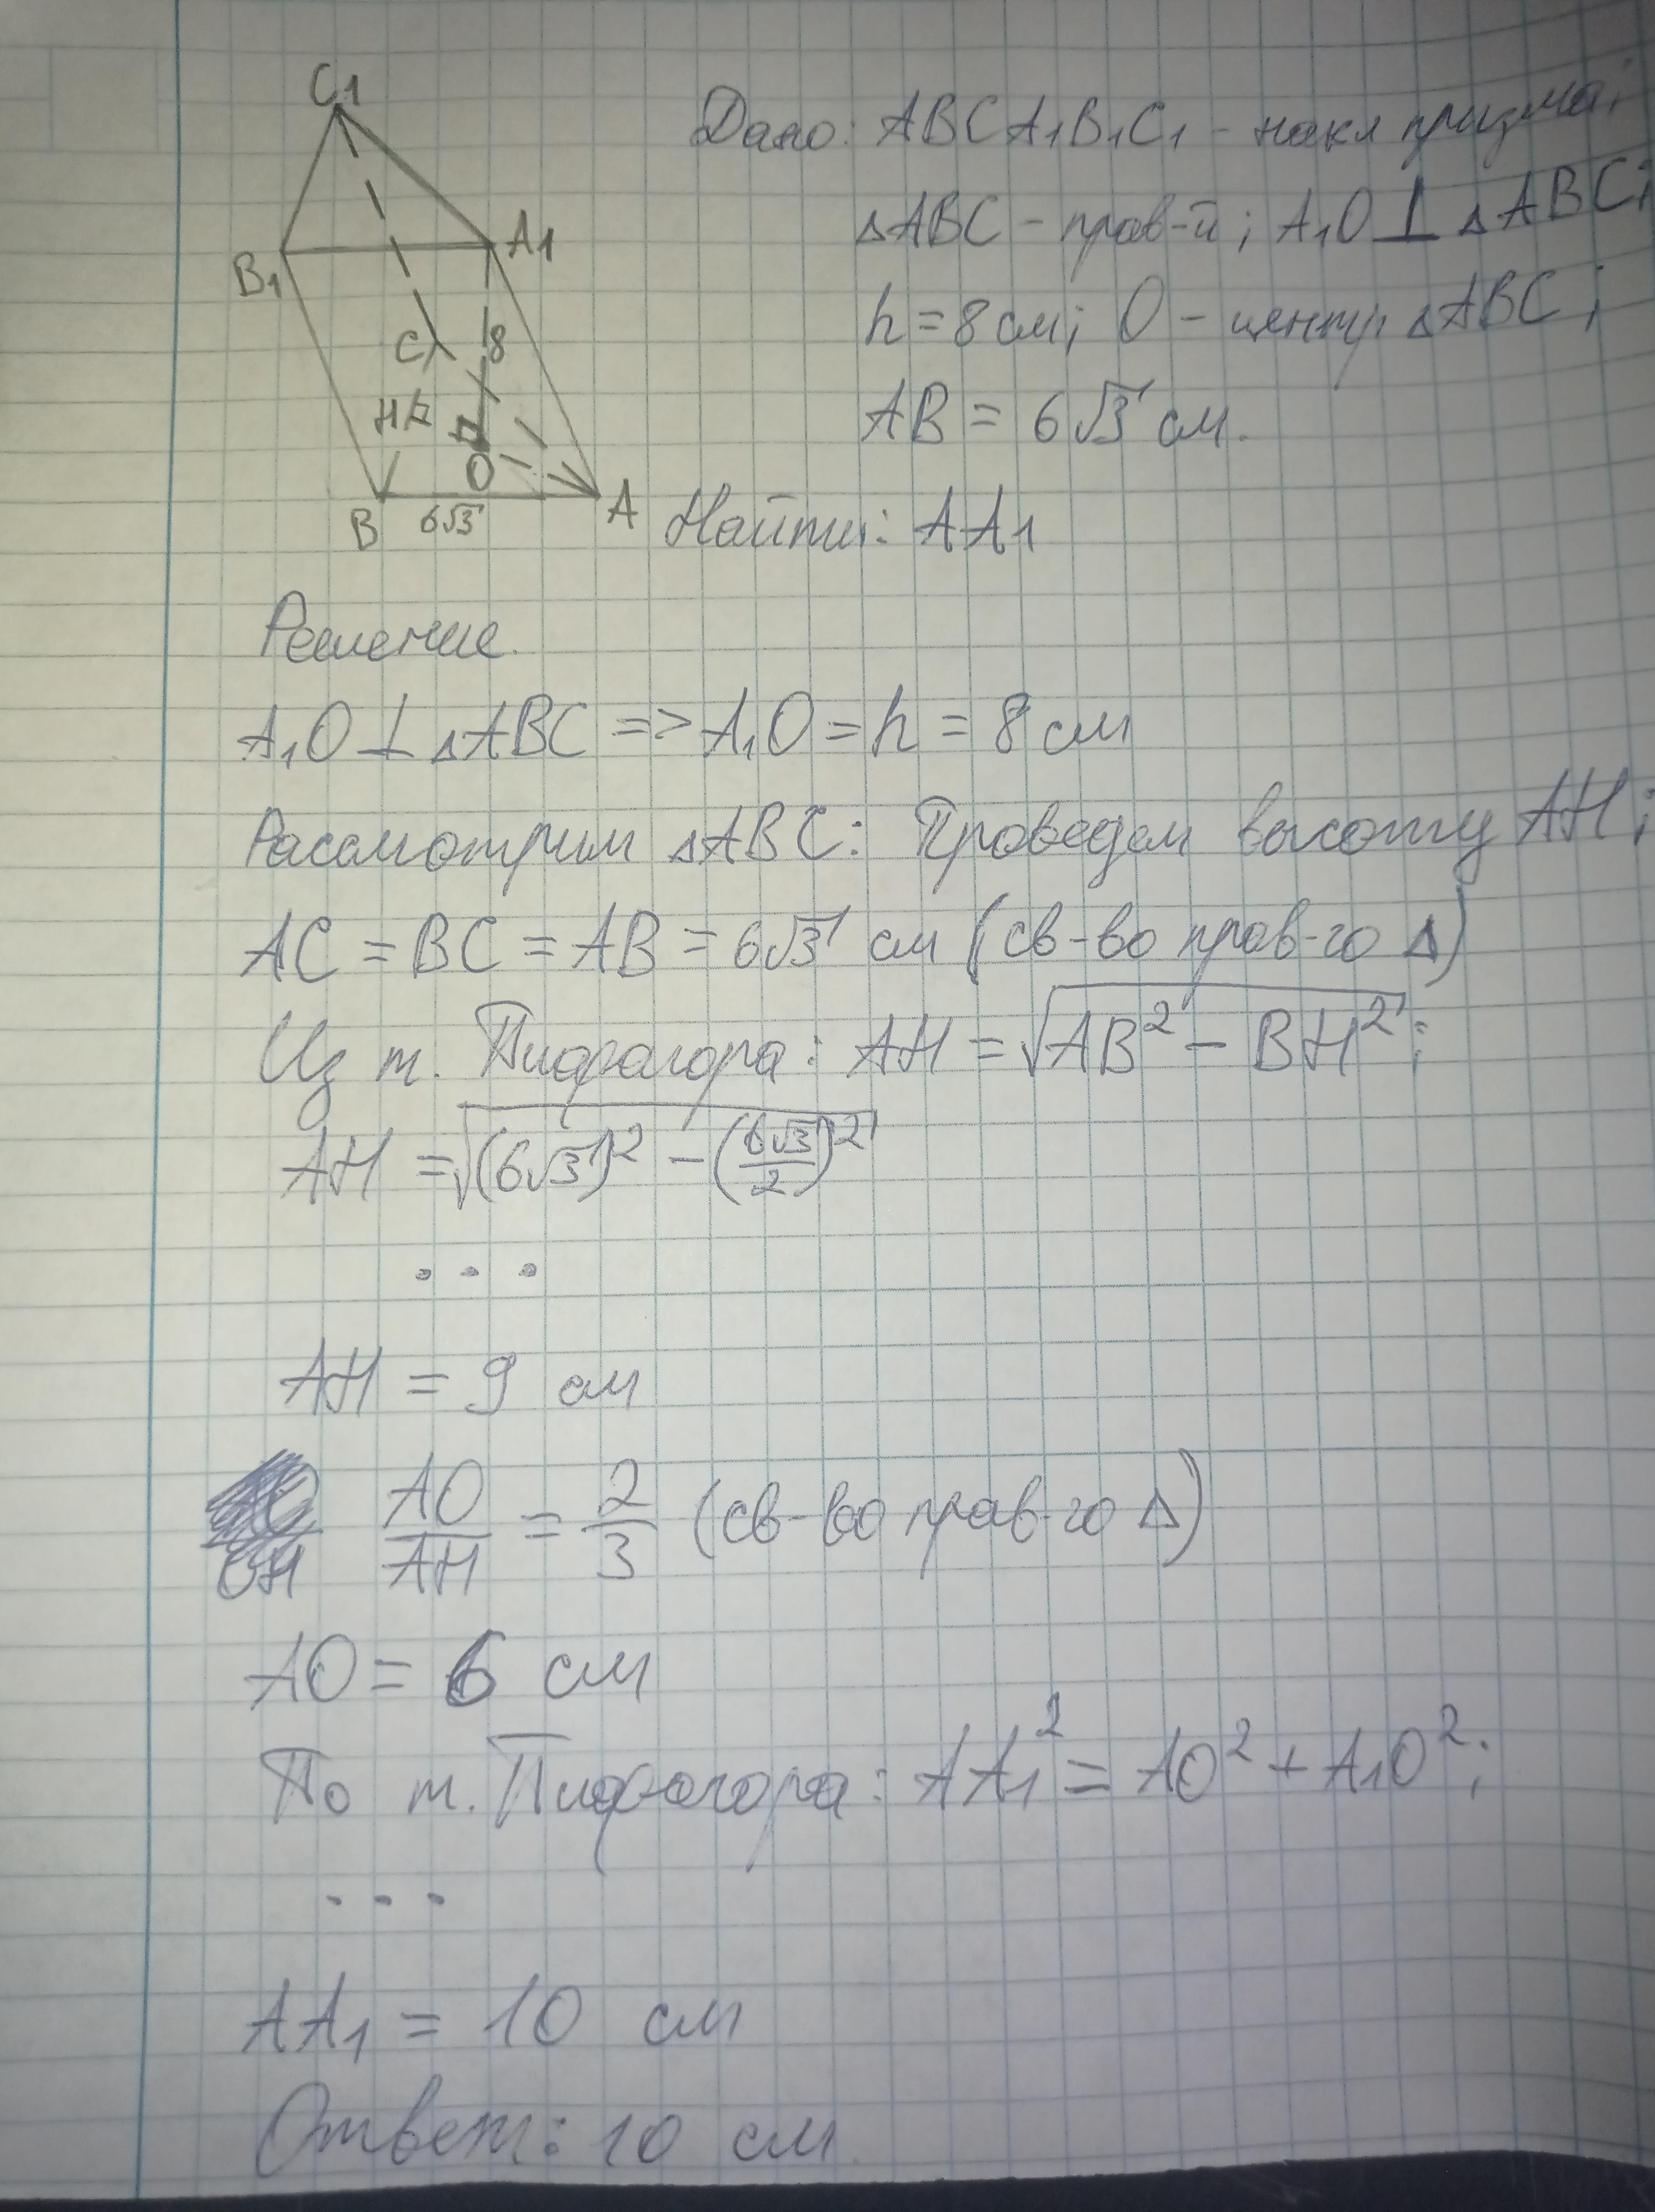 C1
B1
A1
C
8
H
O
B
6√3
A
Дано: ABCA1B1C1 - накл призма;
△ABC - прав-й; A1O ⊥ △ABC;
h = 8 см; O - центр △ABC;
AB = 6√3 см.
Найти: AA1
Решение.
A1O ⊥ △ABC => A1O = h = 8 см
Рассмотрим △ABC: Проведем высоту AH;
AC = BC = AB = 6√3 см (св-во прав-го △)
Из т. Пифагора: AH = √(AB² - BH²);
AH = √((6√3)² - (6√3/2)²)
...
AH = 9 см
OH AO/AH = 2/3 (св-во прав-го △)
AO = 6 см
По т. Пифагора: AA1² = AO² + A1O²;
...
AA1 = 10 см
Ответ: 10 см